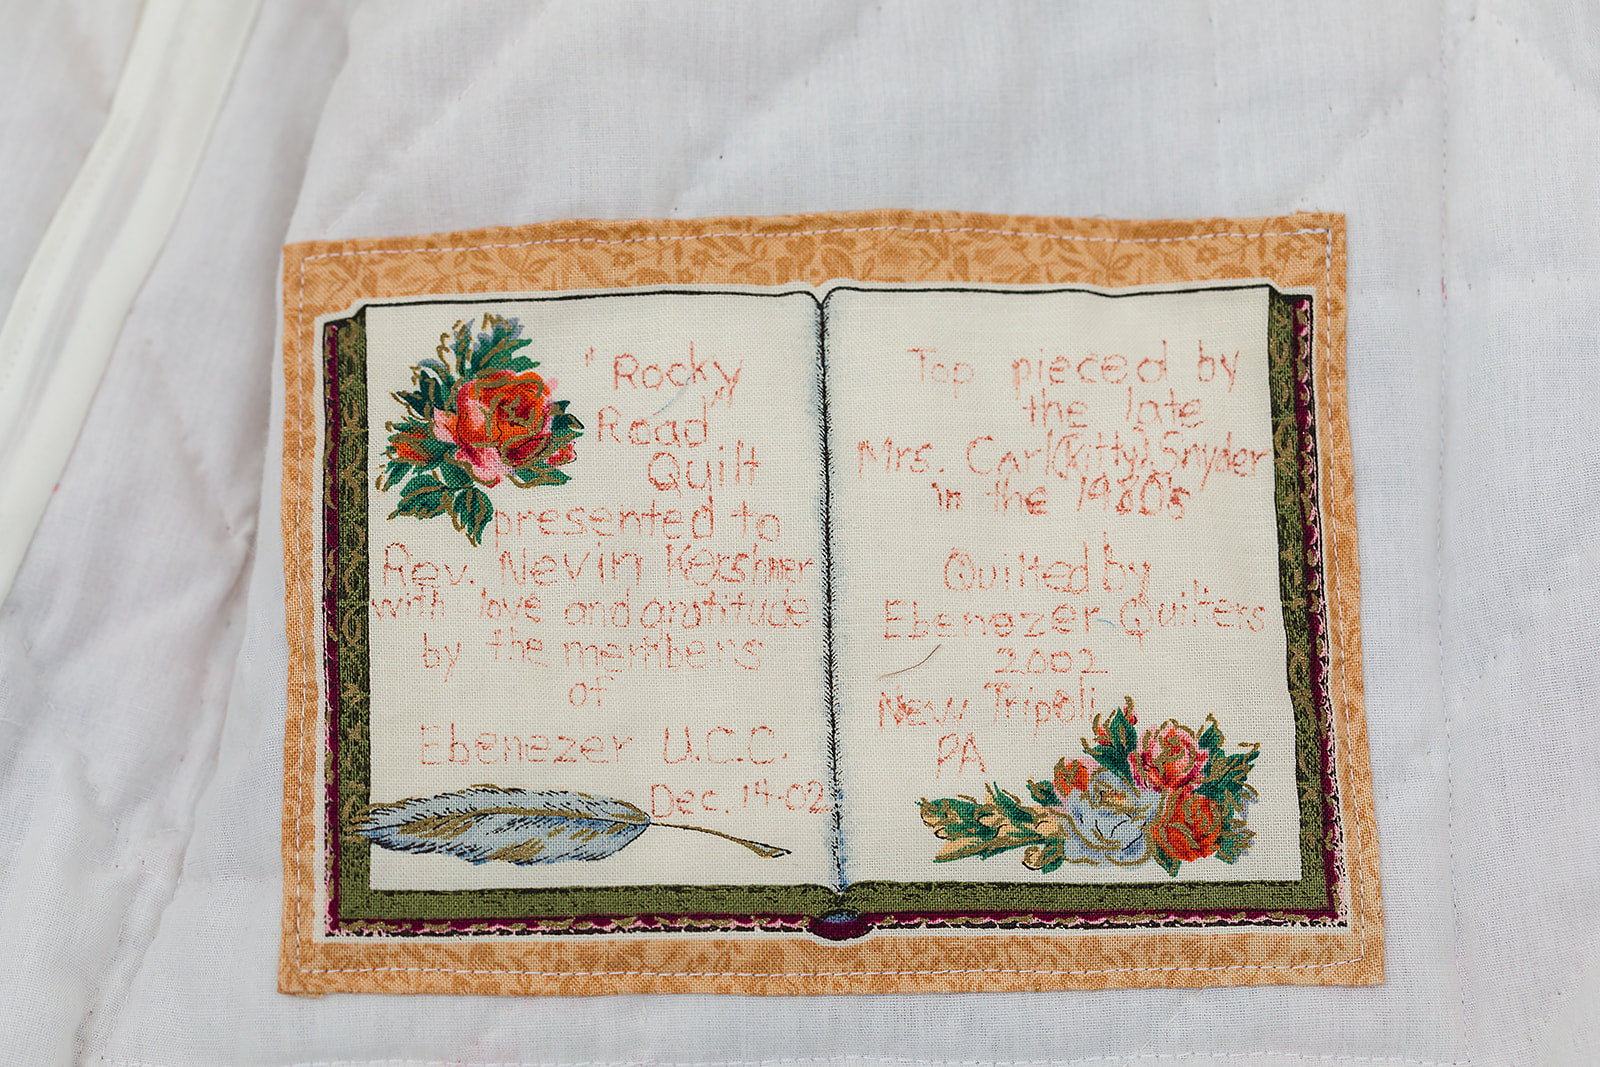 "Rocky
Road"
Quilt
presented to
Rev. Nevin Kershner
with love and gratitude
by the members
of
Ebenezer U.C.C.
Dec. 14-02
Top pieced by
the late
Mrs. Carl (Kitty) Snyder
in the
Quilted by
Ebenezer Quilters
2002
New Tripoli
PA